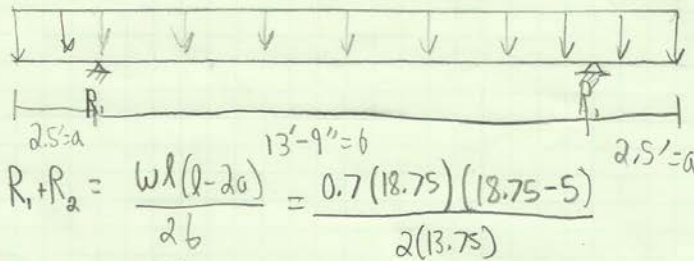 R₁ R₂
2.5'=a 13'-9"=b 2.5'=a
R₁+R₂ = wl(l-2a)/2b = 0.7(18.75)(18.75-5)/2(13.75)